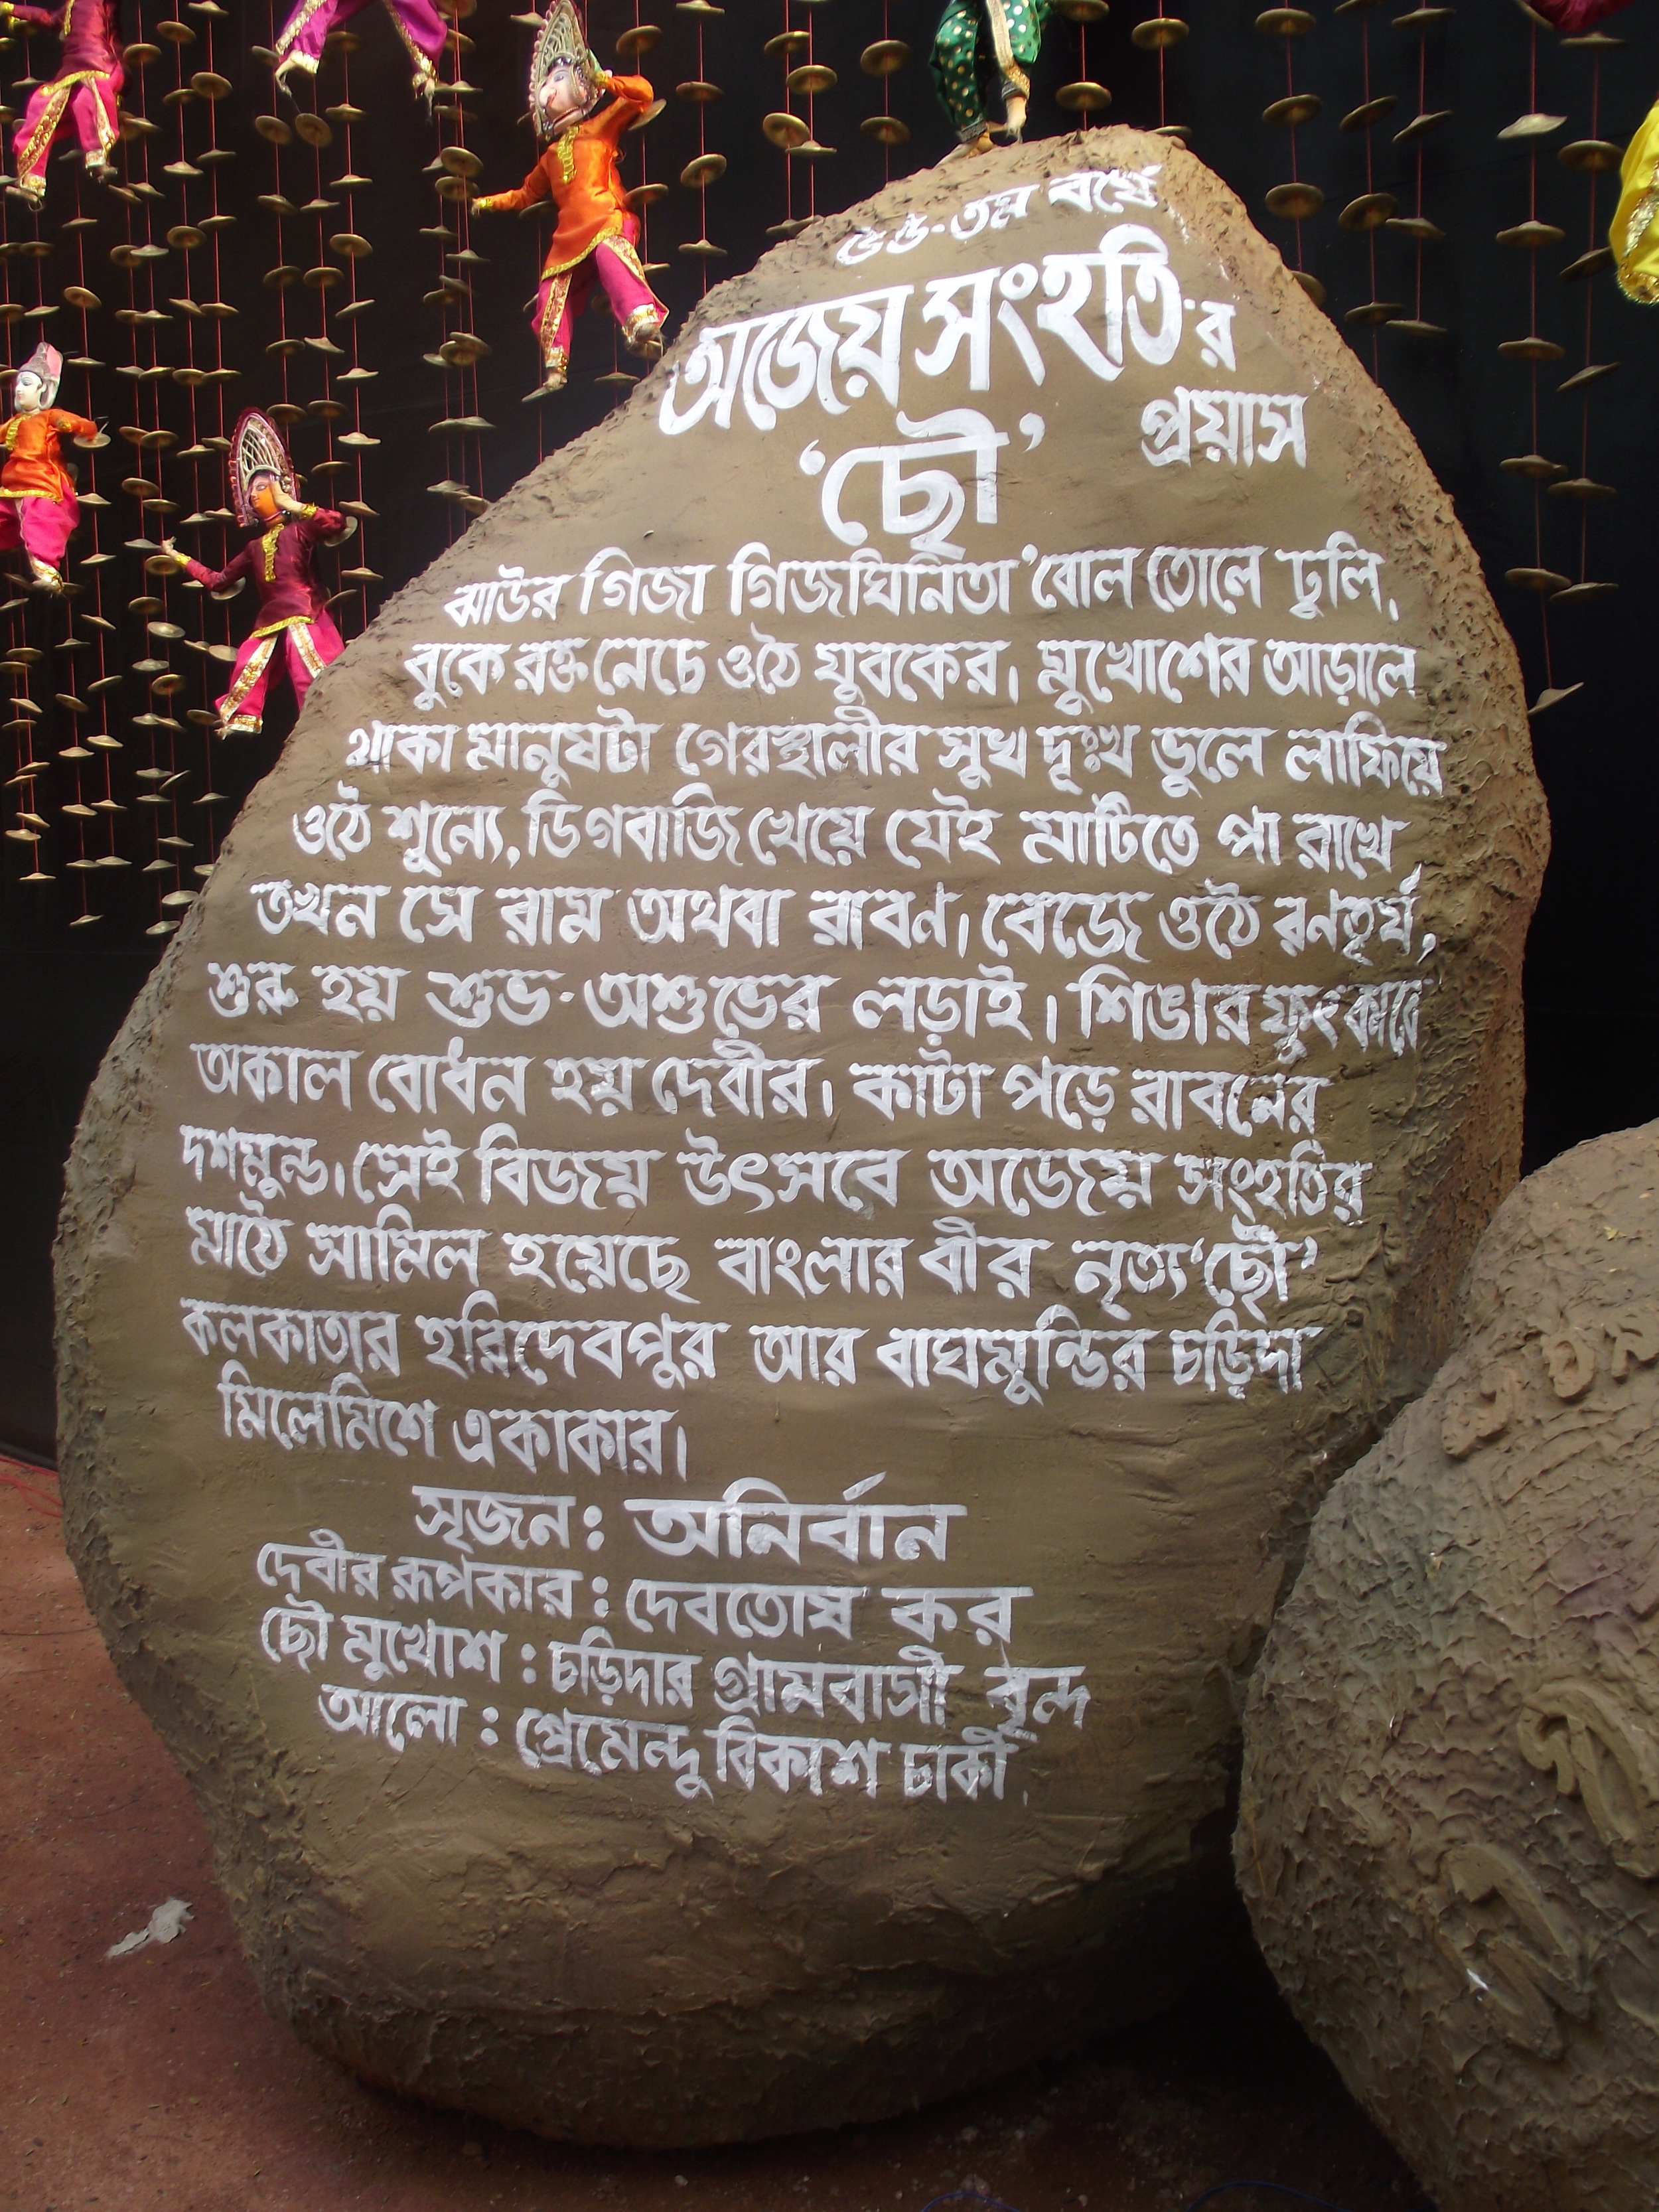 তম বর্ষে
অজেয় সংহতি'র
প্রয়াস
'ছৌ'
ঝাউর গিজা গিজঘিনিতা 'বোল তোলে ঢুলি,
বুকে রক্ত নেচে ওঠে যুবকের। মুখোশের আড়ালে
থাকা মানুষটা গেরস্থালীর সুখ দুঃখ ভুলে লাফিয়ে
ওঠে শূন্যে, ডিগবাজি খেয়ে যেই মাটিতে পা রাখে
তখন সে রাম অথবা রাবণ। বেজে ওঠে রণতূর্য,
শুরু হয় শুভ-অশুভের লড়াই। শিঙার ফুৎকারে
অকাল বোধন হয় দেবীর। কাটা পড়ে রাবনের
দশমুন্ড। সেই বিজয় উৎসবে অজেয় সংহতির
মাঠে সামিল হয়েছে বাংলার বীর নৃত্য 'ছৌ'
কলকাতার হরিদেবপুর আর বাঘমুন্ডির চড়িদা
মিলেমিশে একাকার।
সৃজন : অনির্বান
দেবীর রূপকার : দেবতোষ কর
ছৌ মুখোশ : চড়িদার গ্রামবাসী বৃন্দ
আলো : প্রেমেন্দু বিকাশ চাকী